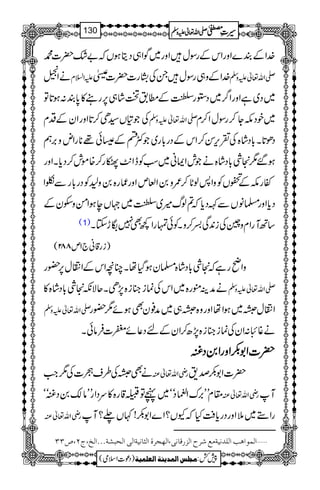 سیرتِ مصطفیٰ صلی اللہ تعالیٰ علیہ وسلم
130
خدا کے بندے اور اس کے رسول ہیں اور میں گواہی دیتا ہوں کہ بے شک حضرت محمد
صلی اللہ تعالیٰ علیہ وسلم خدا کے وہی رسول ہیں جن کی بشارت حضرت عیسیٰ علیہ السلام نے انجیل
میں دی ہے اور اگر میں دستور سلطنت کے مطابق تخت شاہی پر رہنے کا پابند نہ ہوتا تو
میں خود مکہ جا کر رسول اکرم صلی اللہ تعالیٰ علیہ وسلم کی جوتیاں سیدھی کرتا اور ان کے قدم
دھوتا۔ بادشاہ کی تقریر سن کر اس کے درباری جو کٹر قسم کے عیسائی تھے ناراض و برہم
ہو گئے مگر نجاشی بادشاہ نے جوش ایمانی میں سب کو ڈانٹ پھٹکار کر خاموش کر دیا۔ اور
کفار مکہ کے تحفوں کو واپس لوٹا کر عمرو بن العاص اور عمارہ بن ولید کو دربار سے نکلوا
دیا اور مسلمانوں سے کہہ دیا کہ تم لوگ میری سلطنت میں جہاں چاہو امن و سکون کے
ساتھ آرام و چین کی زندگی بسر کرو۔ کوئی تمہارا کچھ بھی نہیں بگاڑ سکتا۔ (1)
(زرقانی ج۱ ص۲۸۸)
واضح رہے کہ نجاشی بادشاہ مسلمان ہو گیا تھا۔ چنانچہ اس کے انتقال پر حضور
صلی اللہ تعالیٰ علیہ وسلم نے مدینہ منورہ میں اس کی نماز جنازہ پڑھی۔ حالانکہ نجاشی بادشاہ کا
انتقال حبشہ میں ہوا تھا اور وہ حبشہ ہی میں مدفون بھی ہوئے مگر حضور صلی اللہ تعالیٰ علیہ وسلم
نے غائبانہ ان کی نماز جنازہ پڑھ کر ان کے لئے دعائے مغفرت فرمائی۔
حضرت ابوبکر اور ابن دغنہ
حضرت ابوبکر صدیق رضی اللہ تعالیٰ عنہ نے بھی حبشہ کی طرف ہجرت کی مگر جب
آپ رضی اللہ تعالیٰ عنہ مقام ”برک الغماد“ میں پہنچے تو قبیلہ قارہ کا سردار ”مالک بن دغنہ“
راستے میں ملا اور دریافت کیا کہ کیوں؟ اے ابوبکر! کہاں چلے؟ آپ رضی اللہ تعالیٰ عنہ
1.....المواهب اللدنيةمع شرح الزرقاني،الهجرة الثانيةالى الحبشة...الخ،ج۲،ص۳۳
پیش کش: مجلس المدينة العلمية (دعوتِ اسلامی)